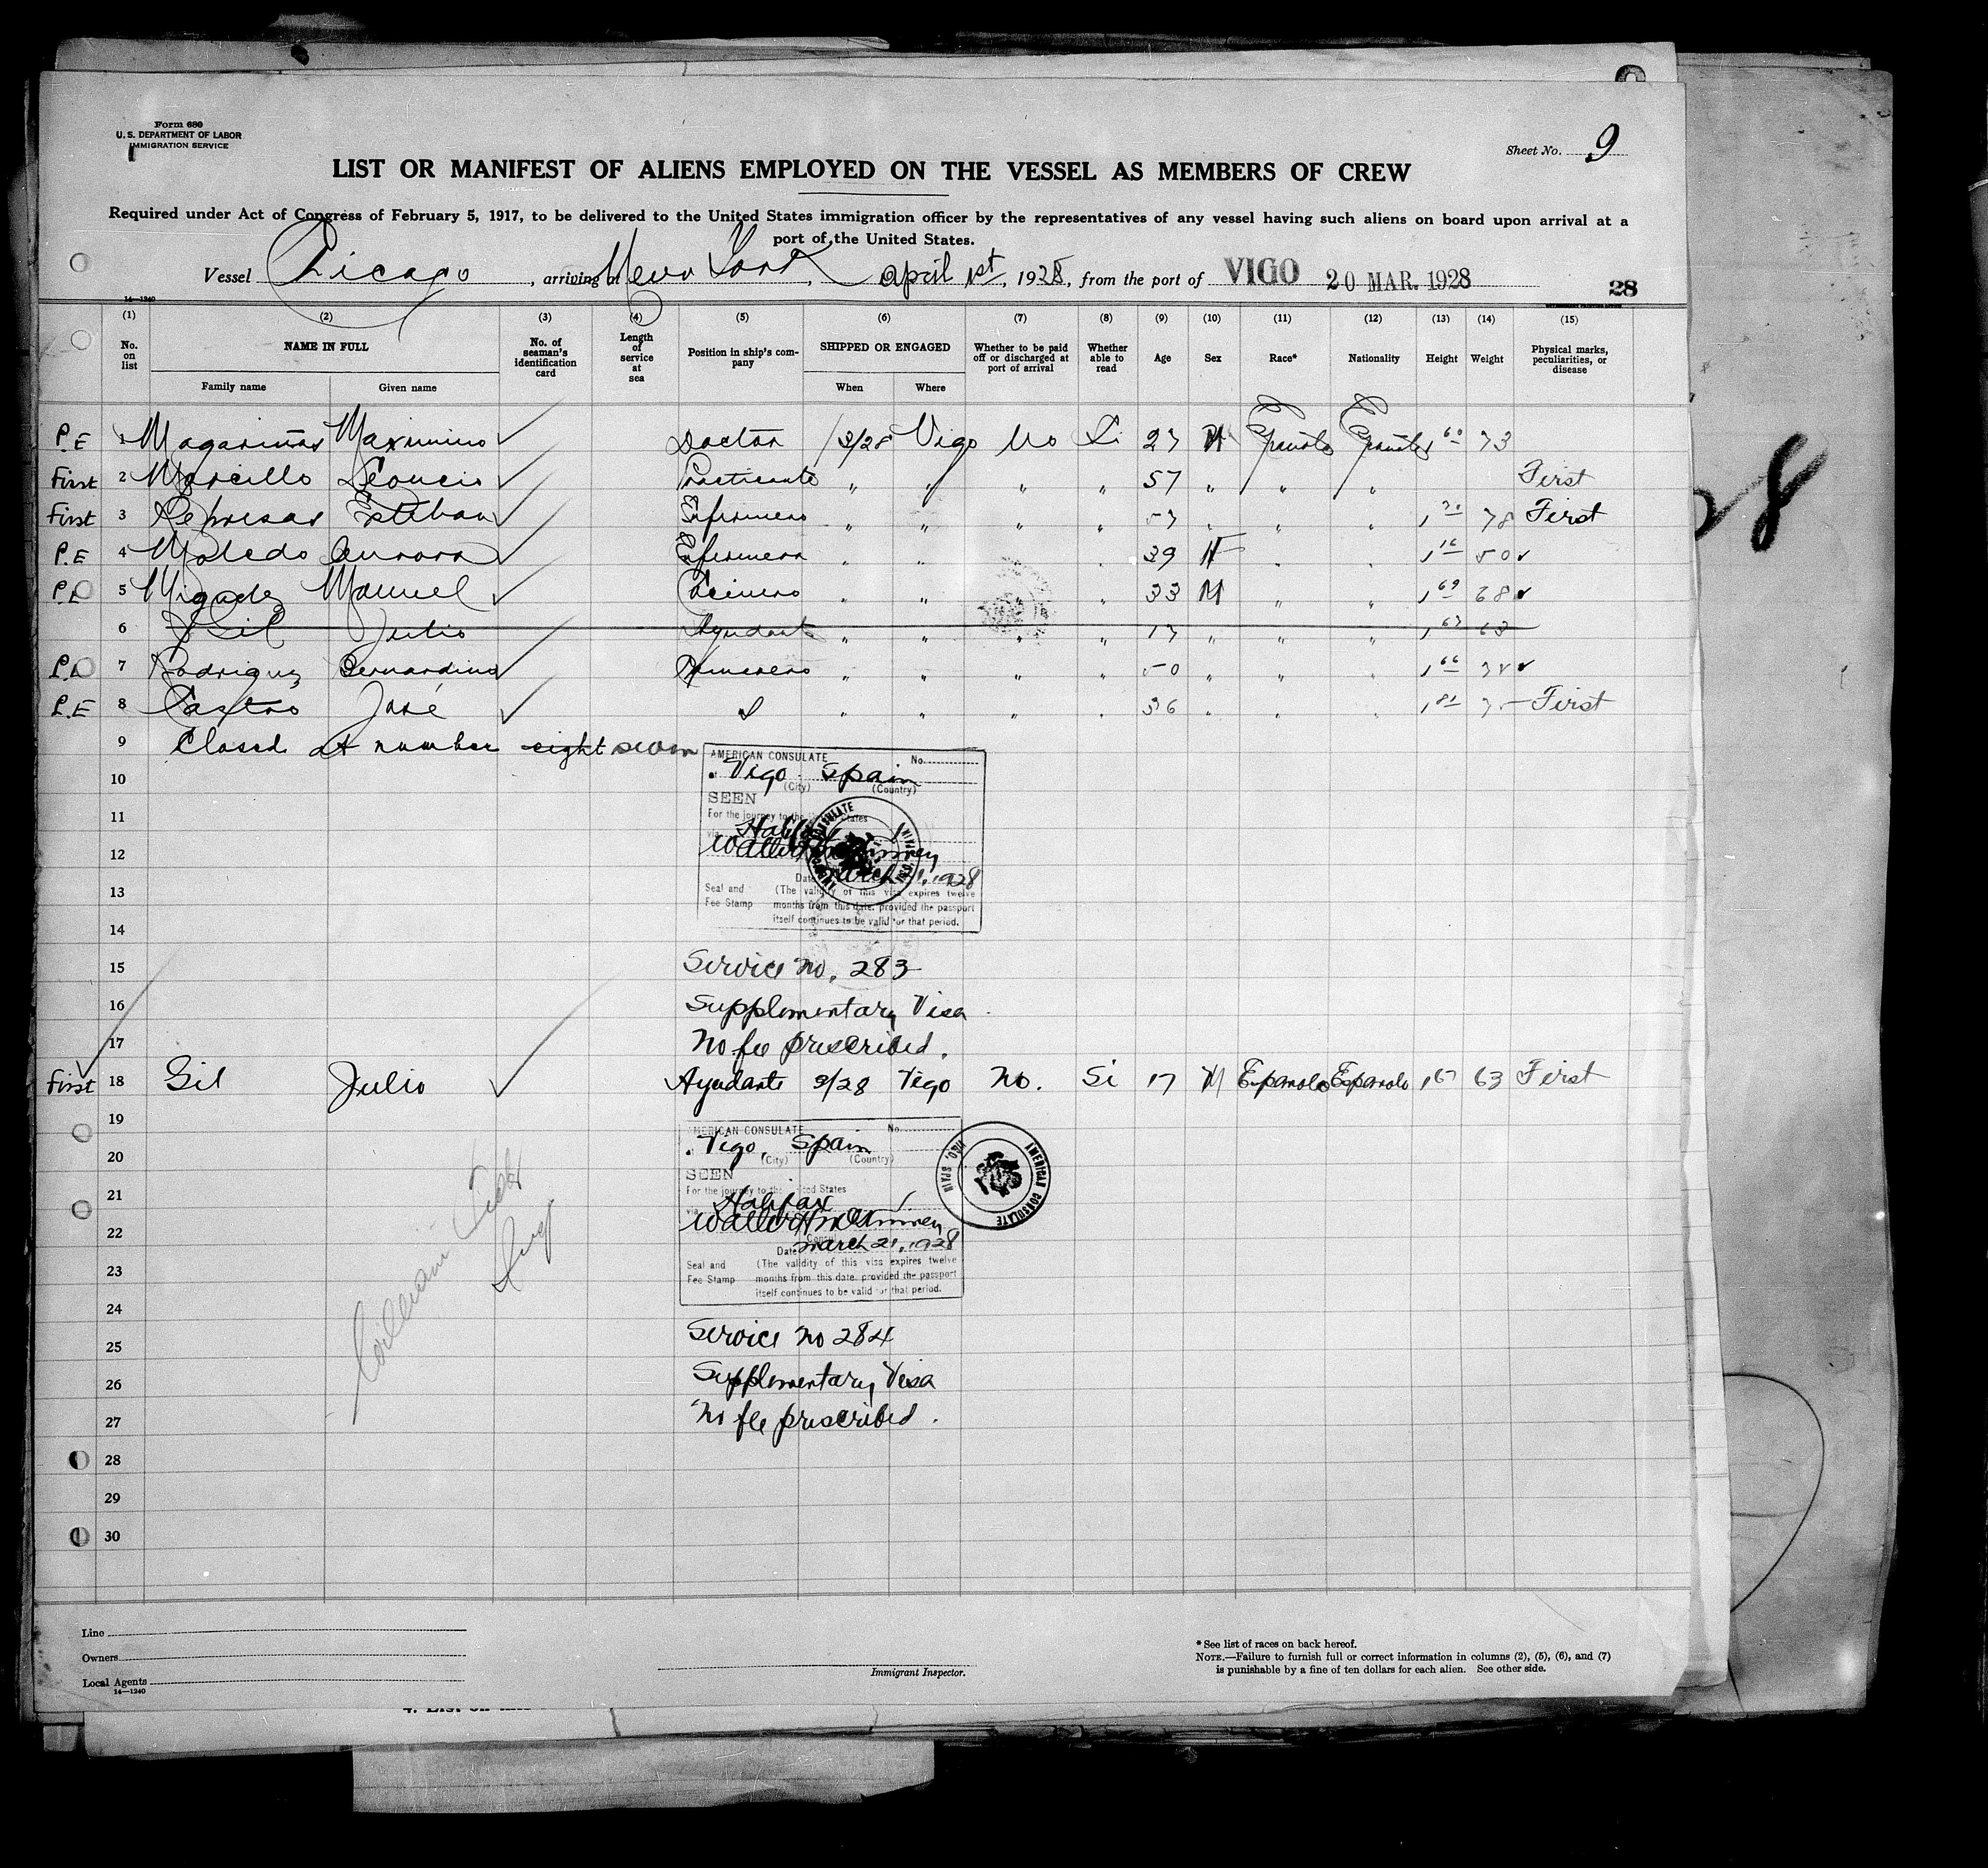 Form 680
U. S. DEPARTMENT OF LABOR
IMMIGRATION SERVICE
Sheet No. 9
LIST OR MANIFEST OF ALIENS EMPLOYED ON THE VESSEL AS MEMBERS OF CREW
Required under Act of Congress of February 5, 1917, to be delivered to the United States immigration officer by the representatives of any vessel having such aliens on board upon arrival at a
port of the United States.
Vessel Chicago, arriving at New York, April 1st, 1928, from the port of VIGO 20 MAR. 1928
28
14—1240
(1) (2) (3) (4) (5) (6) (7) (8) (9) (10) (11) (12) (13) (14) (15)
No. on list NAME IN FULL No. of seaman's identification card Length of service at sea Position in ship's company SHIPPED OR ENGAGED Whether to be paid off or discharged at port of arrival Whether able to read Age Sex Race* Nationality Height Weight Physical marks, peculiarities, or disease
Family name Given name When Where
P.E 1 Magariños Maximino Doctor 3/28 Vigo No Si 27 M Española Española 1 60 73
First 2 Morcillo Leoncio Practicante " " " " 57 " " " First
First 3 Represas Esteban Enfermero " " " " 57 " " " 1 70 78 First
P.E 4 Moledo Aurora Enfermera " " " " 39 F " " 1 16 50
5 Miguez Manuel Cocinero " " " " 33 M " " 1 69 68
6 Gil Julio Ayudante " " " " 17 " " " 1 67 63
7 Rodriguez Bernardino Camarero " " " " 50 " " " 1 66
P.E 8 Castro José " " " " 36 " " " 1 81 First
9 Closed at number eight seven
10
11
12
13
14
AMERICAN CONSULATE No.
at Vigo Spain
(City) (Country)
SEEN
For the journey to the United States
via Halifax
Walter H McKinney
Date March 21, 1928
Seal and Fee Stamp (The validity of this visa expires twelve
months from this date, provided the passport
itself continues to be valid for that period.
15 Service No. 283
16 Supplementary Visa
17 No fee prescribed.
First 18 Gil Julio Ayudante 3/28 Vigo No. Si 17 M Espanola Espanola 1 67 63 First
19
20
21
22
23
24
AMERICAN CONSULATE No.
at Vigo, Spain
(City) (Country)
SEEN
For the journey to the United States
via Halifax
Walter H McKinney
Consul
Date March 21, 1928
Seal and Fee Stamp (The validity of this visa expires twelve
months from this date, provided the passport
itself continues to be valid for that period.
AMERICAN CONSULATE
VIGO, SPAIN
25 Service No 284
26 Supplementary Visa
27 No fee prescribed.
28
29
30
Line
Owners
Local Agents
14—1240
Immigrant Inspector.
* See list of races on back hereof.
NOTE.—Failure to furnish full or correct information in columns (2), (5), (6), and (7)
is punishable by a fine of ten dollars for each alien. See other side.